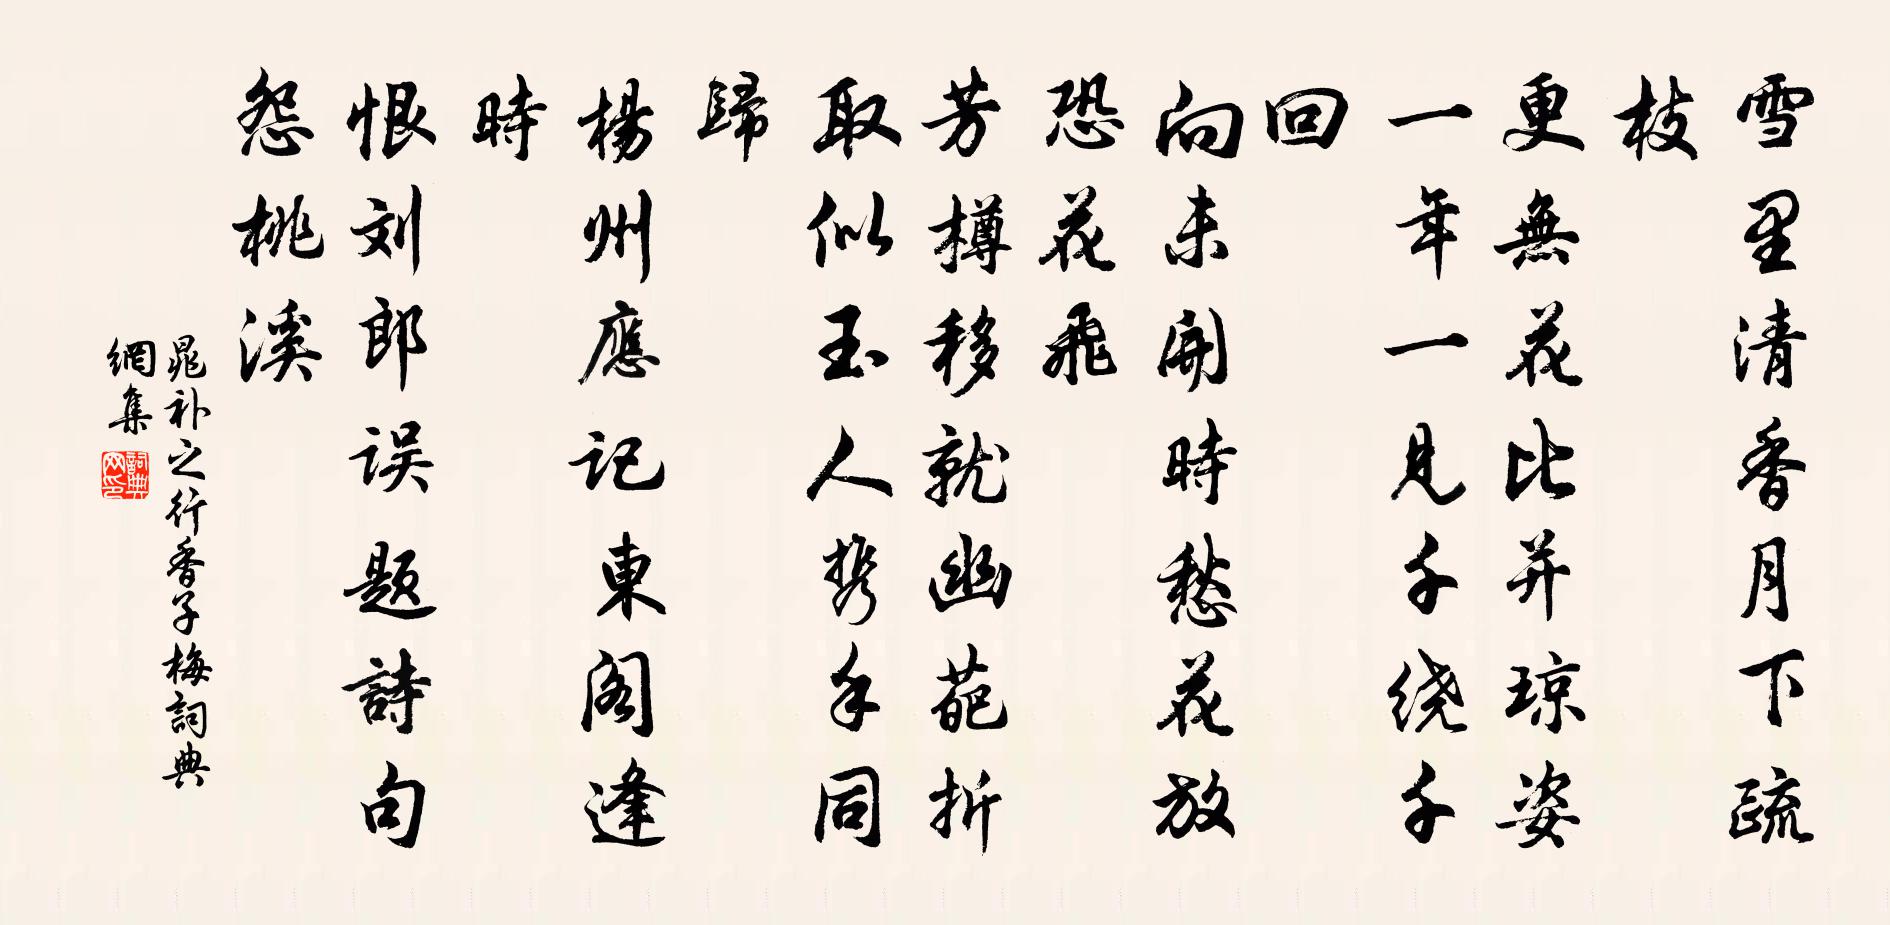 雪里清香月下疏
枝
更無花比并琼姿
一年一見千绕千
回
向未開時愁花放
恐花飛
芳樽移就幽葩折
取似玉人携手同
歸
楊州應记東阁逢
時
恨刘郎误题詩句
怨桃溪
晁补之行香子梅詞典
網集
詞典網印